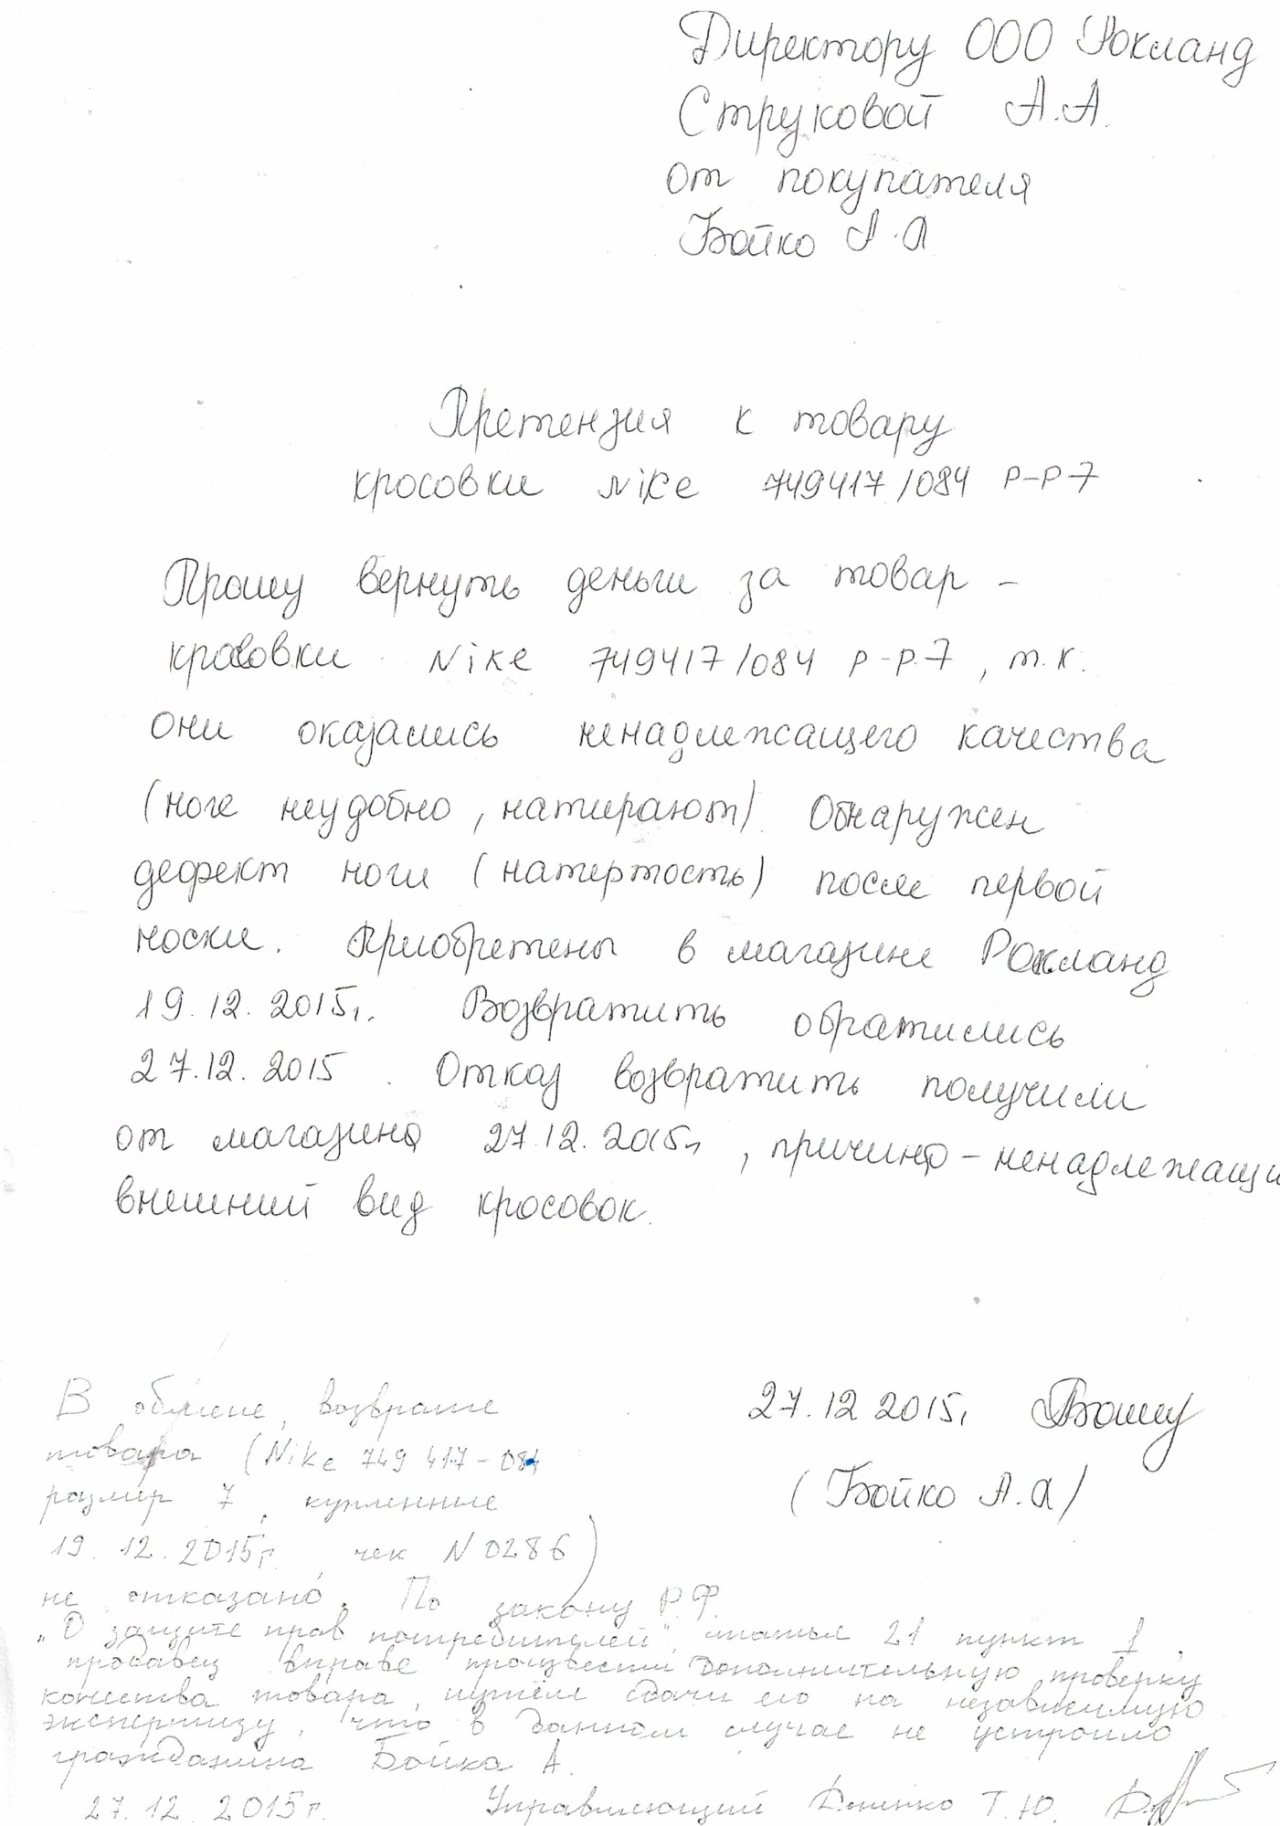 Директору ООО Рокланд
Струковой А.А.
от покупателя
Бойко А.А
Претензия к товару
кросовки Nike 749417/084 р-р 7
Прошу вернуть деньги за товар –
крововки Nike 749417/084 р-р.7, т.к.
они оказались ненадлежащего качества
(ноге неудобно, натирают). Обнаружен
дефект ноги (натертость) после первой
носки. Приобретены в магазине Рокланд
19.12.2015г. Возвратить обратились
27.12.2015. Отказ возвратить получили
от магазина 27.12.2015г, причина – ненадлежащи
внешний вид кросовок.
27.12 2015г
(Бойко А.А)
В обмене, возврате
товара (Nike 749 417-084
размер 7, купленные
19.12.2015г. чек N 0286)
не отказано. По закону Р.Ф.
„О защите прав потребителей", статья 21 пункт 1,
продавец вправе произвести дополнительную проверку
качества товара, путём сдачи его на независимую
экспертизу, что в данном случае не устроило
гражданина Бойка А.
27.12.2015г. Управляющий Т.Ю.